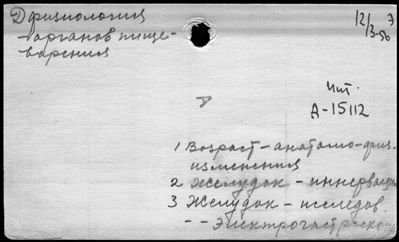 Д физиология
12/3-56 Э
- органов пище-
варения
Чит.
А-15112
1 Возраст - анатомо-физ.
изменения
2 Желудок - иннервация
3 Желудок - исследов.
-- Электрогастроско